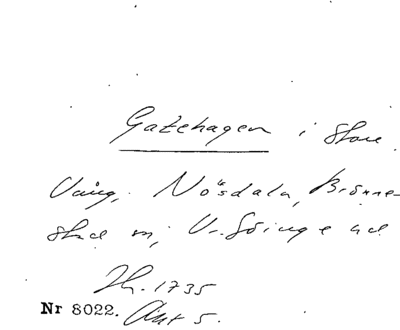 Gatehagen i Store
Vång, Nösdala, Brönne
stad sn, V. Göinge hd
Lh. 1735
Nr 8022. Akt 5.